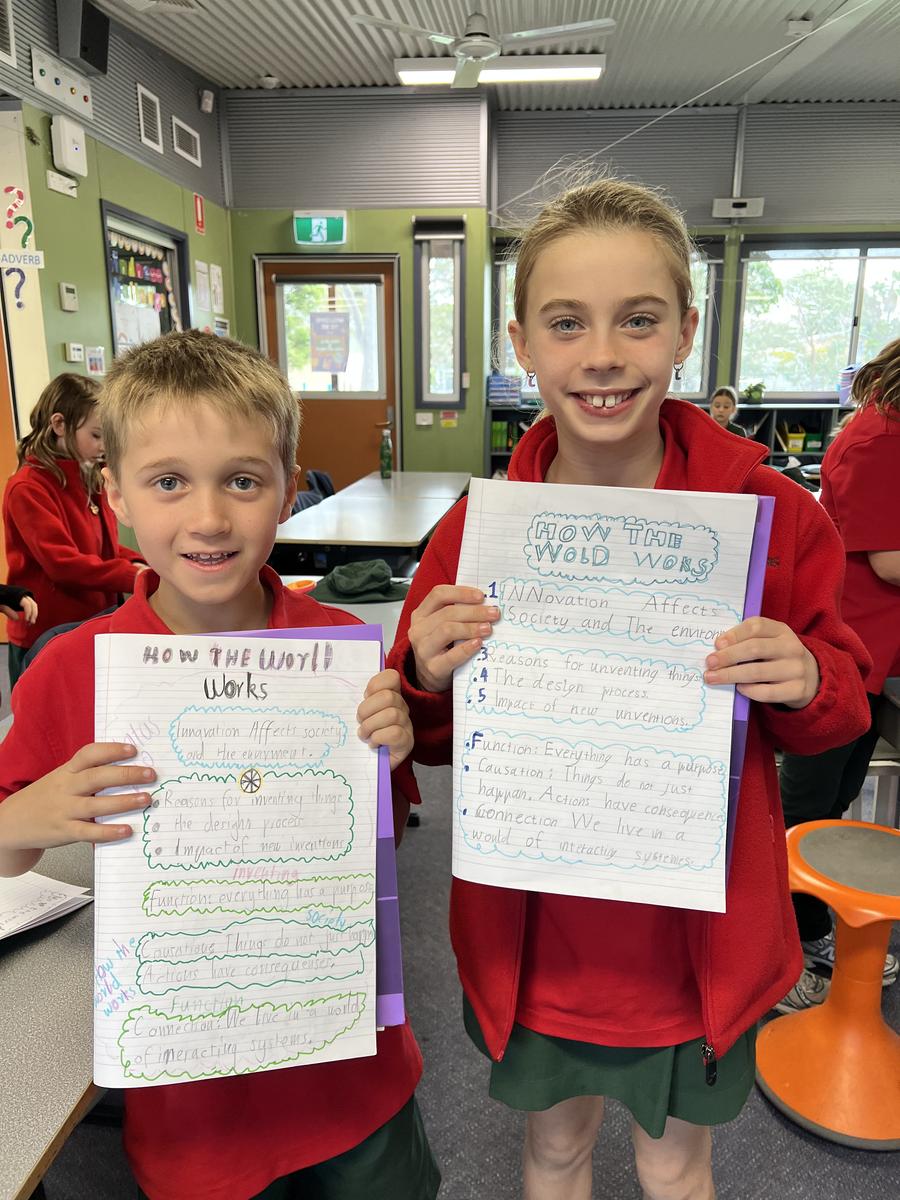 ADVERB
HOW THE WorlD
Works
Innavation Affects society
and the enviyment.
Reasons for inventing things
the designs process
Impact of new inventions
inventing
Function: everything has a purpose
society
Causations Things do not just happen
Actions have consequenses.
How the
world
works
Function
Connection: We live in a world
of ineracting systems.
HOW THE
WOLD WOKS
.1 iNNovation Affects
Society and The environ
.3 Reasons for unventing things
.4 The design process.
.5 Impact of new unventions.
.Function: Everything has a purpose
Causation: Things do not just
happan. Actions have consequence
Connection We live in a
would of interactiv systemes.